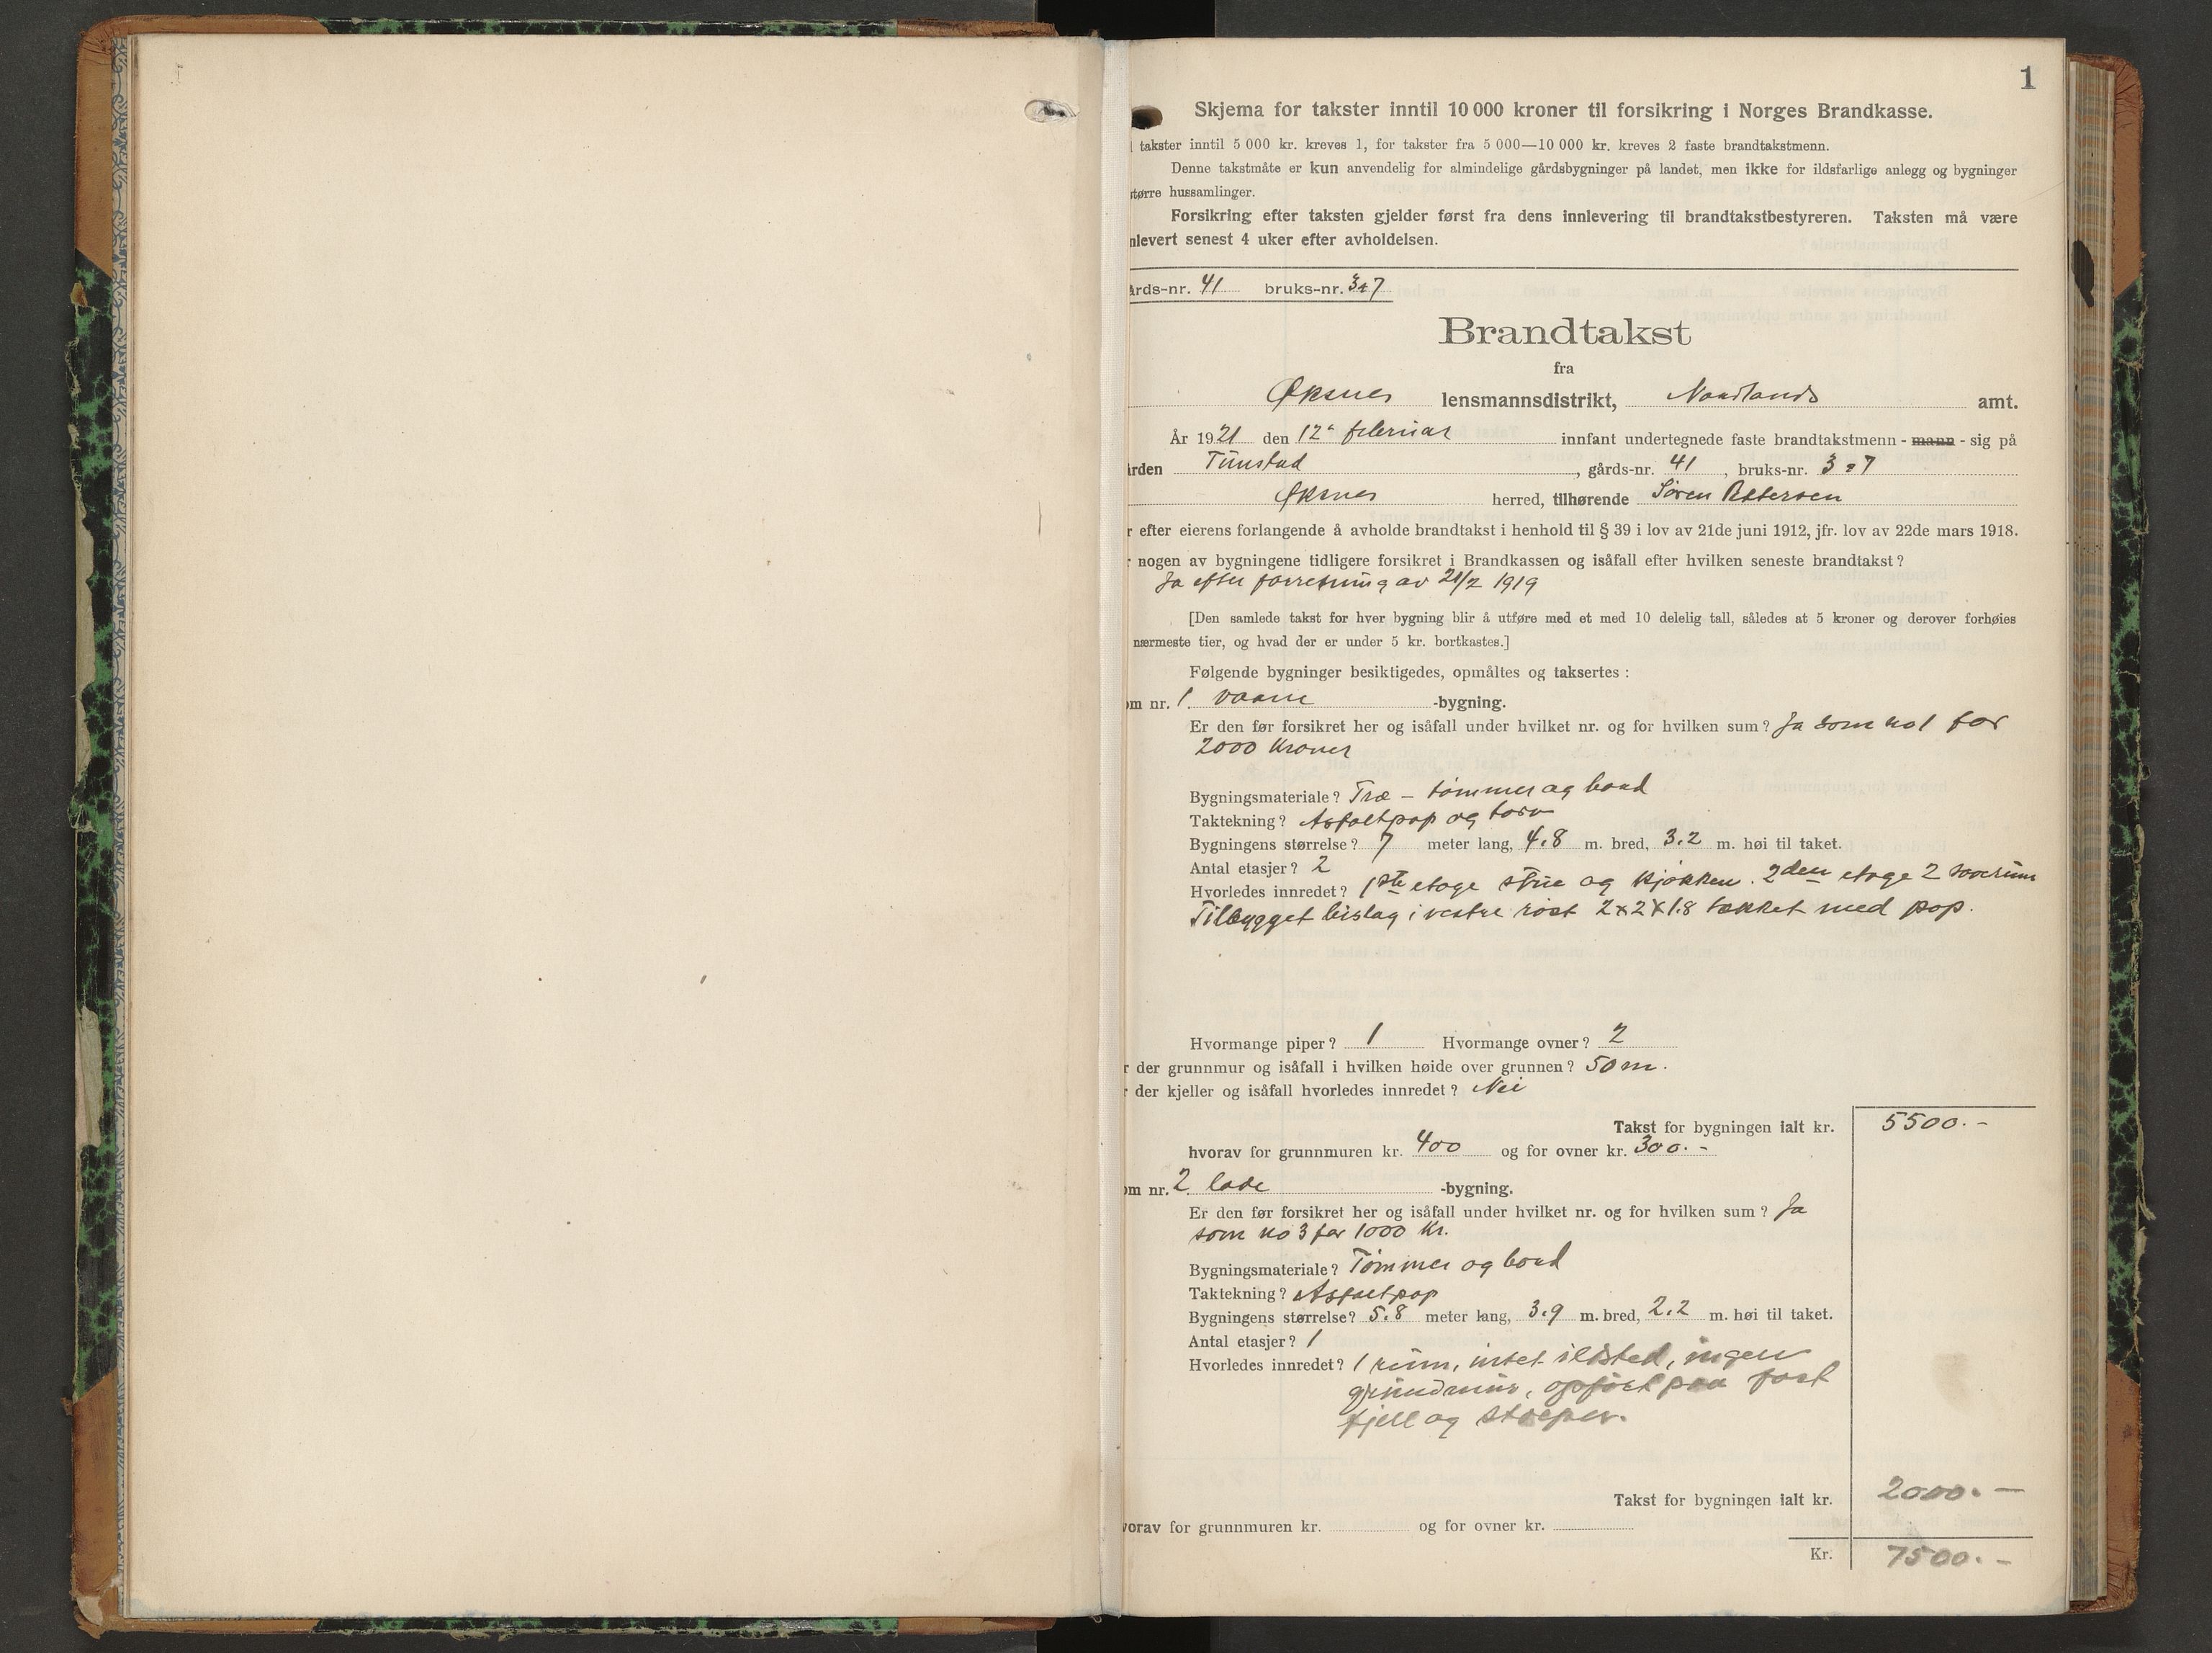 1
Skjema for takster inntil 10 000 kroner til forsikring i Norges Brandkasse.
takster inntil 5 000 kr. kreves 1, for takster fra 5 000—10 000 kr. kreves 2 faste brandtakstmenn.
Denne takstmåte er kun anvendelig for almindelige gårdsbygninger på landet, men ikke for ildsfarlige anlegg og bygninger
større hussamlinger.
Forsikring efter taksten gjelder først fra dens innlevering til brandtakstbestyreren. Taksten må være
nlevert senest 4 uker efter avholdelsen.
årds-nr. 41 bruks-nr. 3 & 7
Brandtakst
fra
Øksnes lensmannsdistrikt, Nordlands amt.
År 1921 den 12te februar innfant undertegnede faste brandtakstmenn - mann - sig på
ården Tunstad, gårds-nr. 41, bruks-nr. 3 & 7
Øksnes herred, tilhørende Søren Pettersen
r efter eierens forlangende å avholde brandtakst i henhold til § 39 i lov av 21de juni 1912, jfr. lov av 22de mars 1918.
r nogen av bygningene tidligere forsikret i Brandkassen og isåfall efter hvilken seneste brandtakst?
Ja efter forretning av 21/2 1919
[Den samlede takst for hver bygning blir å utføre med et med 10 delelig tall, således at 5 kroner og derover forhøies
nærmeste tier, og hvad der er under 5 kr. bortkastes.]
Følgende bygninger besiktigedes, opmåltes og taksertes :
om nr. 1 vaane -bygning.
Er den før forsikret her og isåfall under hvilket nr. og for hvilken sum? Ja som no 1 for
2000 Kroner
Bygningsmateriale? Træ – tømmer og bord
Taktekning? Asfaltpap og torv
Bygningens størrelse? 7 meter lang, 4.8 m. bred, 3.2 m. høi til taket.
Antal etasjer? 2
Hvorledes innredet? 1ste etage stue og kjøkken. 2den etage 2 soverum
Tilbygget bislag i vestre røst 2x2x1.8 tækket med pap.
Hvormange piper? 1 Hvormange ovner? 2
r der grunnmur og isåfall i hvilken høide over grunnen? 50 m.
r der kjeller og isåfall hvorledes innredet? Nei
Takst for bygningen ialt kr. 5500.-
hvorav for grunnmuren kr. 400 og for ovner kr. 300.-
om nr. 2 lade -bygning.
Er den før forsikret her og isåfall under hvilket nr. og for hvilken sum? Ja
som no 3 for 1000 Kr.
Bygningsmateriale? Tømmer og bord
Taktekning? Asfaltpap
Bygningens størrelse? 5.8 meter lang, 3.9 m. bred, 2.2 m. høi til taket.
Antal etasjer? 1
Hvorledes innredet? 1 rum, intet ildsted, ingen
grundmur, opført paa fast
fjell og stolper.
Takst for bygningen ialt kr. 2000.—
vorav for grunnmuren kr. og for ovner kr.
Kr. 7500.-